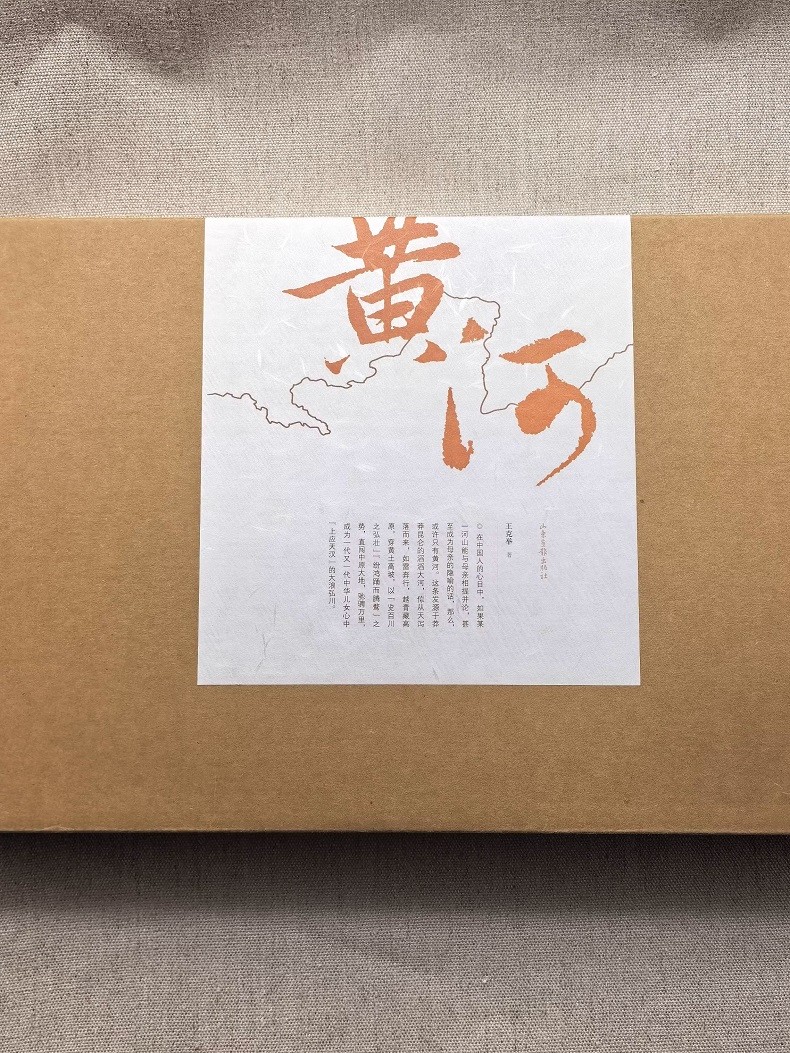 黄河
山东画报出版社
王克举 著
○ 在中国人的心目中，如果某
一河山能与母亲相提并论，甚
至成为母亲的隐喻的话，那么，
或许只有黄河。这条发源于莽
莽昆仑的滔滔大河，倏从天泻
落而来，如雷奔行，越青藏高
原，穿黄土高坡，以「览百川
之弘壮」「纷鸿踊而腾鹜」之
势，直闯中原大地，驰骋万里，
成为一代又一代中华儿女心中
「上应天汉」的大浪弘川。